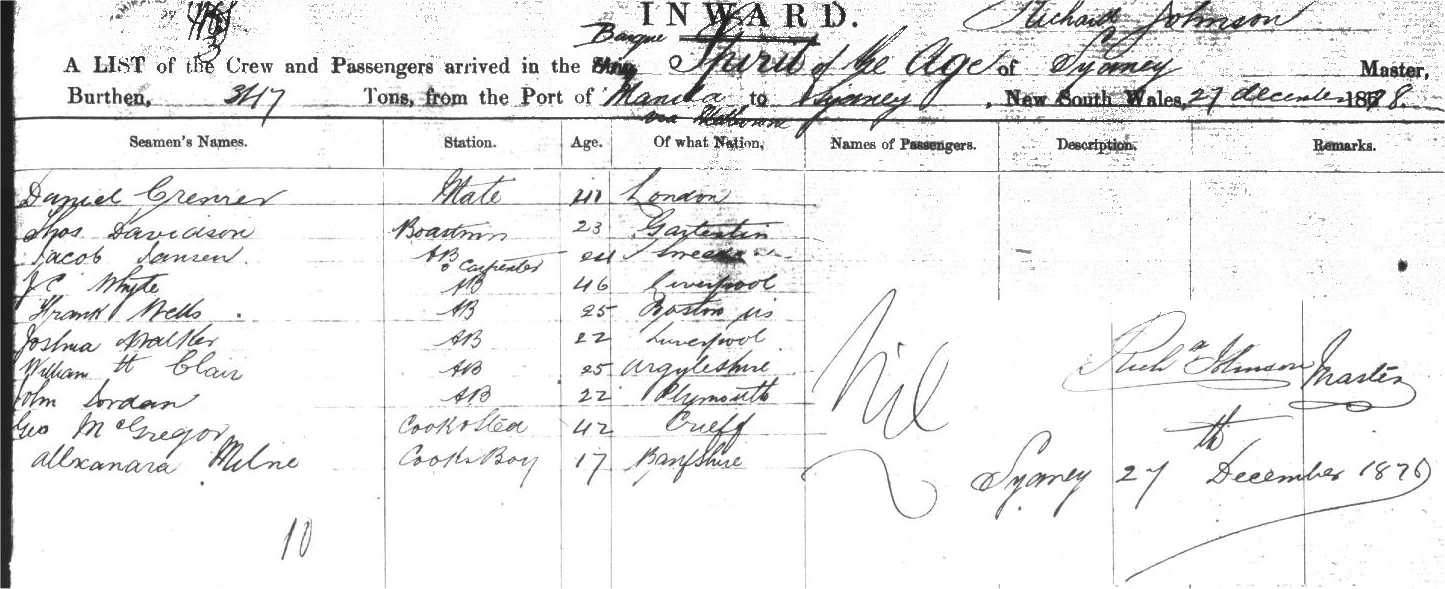 INWARD. Richard Johnson
A LIST of the Crew and Passengers arrived in the Barque Spirit of the Age of Sydney Master,
Burthen, 347 Tons, from the Port of Manila to Sydney, New South Wales, 27 december 1878.
via
Seamen's Names. Station. Age. Of what Nation, Names of Passengers. Description. Remarks.
Daniel Mate 41 London
Thos Davidson 23
Jacob Jansen AB & Carpenter 24
J C Whyte AB 46 Liverpool
Frank Wells AB 25 Boston us
Joshua Walker AB 22 Liverpool
William St Clair AB 25 Argyleshire
John Jordan AB 22 Plymouth
Geo McGregor Cook & Sted 42 Crieff
Allexandra Milne Cooks Boy 17 Banfshire
Nil
Richd Johnson Master
Sydney 27th December 1878
10